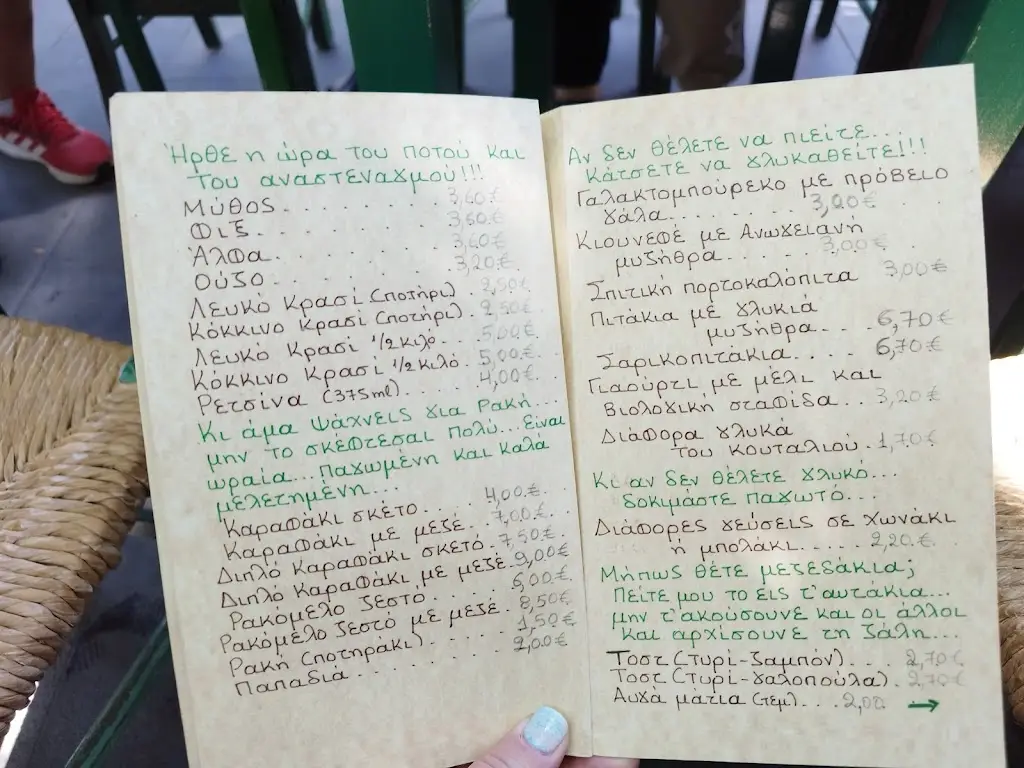 Ήρθε η ώρα του ποτού και
του αναστεναγμού!!!
Μύθος........ 3,60€
Φιξ.......... 3,60€
Άλφα......... 3,60€
Ούζο......... 3,20€
Λευκό Κρασί (ποτήρι). 2,50€
Κόκκινο Κρασί (ποτήρι). 2,50€
Λευκό Κρασί 1/2 κιλό.. 5,00€
Κόκκινο Κρασί 1/2 κιλό. 5,00€
Ρετσίνα (375ml)..... 4,00€
Κι άμα ψάχνεις για Ρακή...
μην το σκέφτεσαι πολύ...Είναι
ωραία...παγωμένη και καλά
μελετημένη...
Καραφάκι σκέτο...... 4,00€
Καραφάκι με μεζέ.. 7,00€
Διπλό Καραφάκι σκέτο. 7,50€
Διπλό Καραφάκι με μεζέ. 9,00€
Ρακόμελο ζεστό..... 6,00€
Ρακόμελο ζεστό με μεζέ. 8,50€
Ρακή (ποτηράκι)...... 1,50€
Παπαδιά........... 2,00€
Αν δεν θέλετε να πιείτε...
Κάτσετε να γλυκαθείτε!!!
Γαλακτομπούρεκο με πρόβειο
γάλα......... 3,00€
Κιουνεφέ με Ανωγειανή
μυζήθρα...... 3,00€
Σπιτική πορτοκαλόπιτα 3,00€
Πιτάκια με γλυκιά
μυζήθρα... 6,70€
Σαρικοπιτάκια.... 6,70€
Γιαούρτι με μέλι και
Βιολογική σταφίδα.. 3,20€
Διάφορα γλυκά
του κουταλιού. 1,70€
Κι αν δεν θέλετε γλυκό...
δοκιμάστε παγωτό...
Διάφορες γεύσεις σε χωνάκι
ή μπολάκι..... 2,20€
Μήπως θέτε μεζεδάκια;
Πείτε μου το εις τ'αυτάκια...
μην τ'ακούσουνε και οι άλλοι
και αρχίσουνε τη ζάλη...
Τοστ (τυρί-ζαμπόν).. 2,70€
Τοστ (τυρί-γαλοπούλα). 2,70€
Αυγά μάτια (τεμ)... 2,00 →